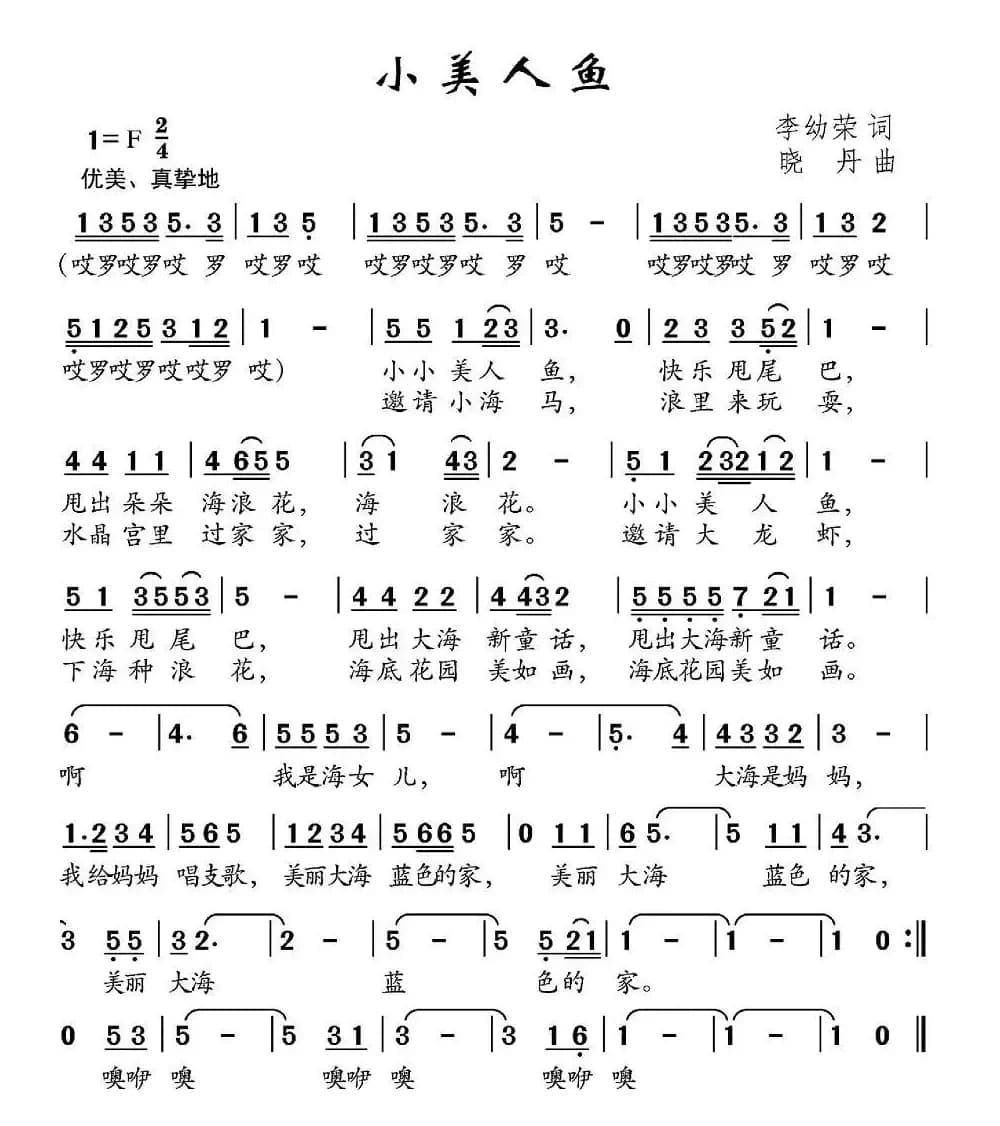 小美人鱼
李幼荣 词
1=F 2/4
晓 丹 曲
优美、真挚地
1353 5. 3 | 1 3 5 | 1353 5. 3 | 5 - | 1353 5. 3 | 1 3 2 |
(哎罗哎罗哎 罗 哎罗哎 哎罗哎罗哎 罗 哎 哎罗哎罗哎 罗 哎罗哎
5125 3 12 | 1 - | 5 5 1 23 | 3. 0 | 2 3 3 52 | 1 - |
哎罗哎罗哎哎罗 哎) 小小美人 鱼, 快乐甩尾 巴,
邀请小海 马, 浪里来玩 耍,
4 4 1 1 | 4 65 5 | 3 1 43 | 2 - | 5 1 23212 | 1 - |
甩出朵朵 海浪花, 海 浪 花。 小小美 人 鱼,
水晶宫里 过家家, 过 家 家。 邀请大 龙 虾,
5 1 3553 | 5 - | 4 4 2 2 | 4 43 2 | 5 5 5 5 7 21 | 1 - |
快乐甩尾 巴, 甩出大海 新童话, 甩出大海新童 话。
下海种浪 花, 海底花园 美如画, 海底花园美如 画。
6 - | 4. 6 | 5 5 5 3 | 5 - | 4 - | 5. 4 | 4 3 3 2 | 3 - |
啊 我是海女 儿, 啊 大海是妈 妈,
1.2 3 4 | 5 6 5 | 1 2 3 4 | 5 66 5 | 0 1 1 | 6 5. | 5 1 1 | 4 3. |
我给妈妈 唱支歌, 美丽大海 蓝色的家, 美丽 大海 蓝色 的家,
3 5 5 | 3 2. | 2 - | 5 - | 5 5 21 | 1 - | 1 - | 1 0 :‖
美丽 大海 蓝 色的 家。
0 5 3 | 5 - | 5 3 1 | 3 - | 3 1 6 | 1 - | 1 - | 1 0 ‖
噢咿 噢 噢咿 噢 噢咿 噢